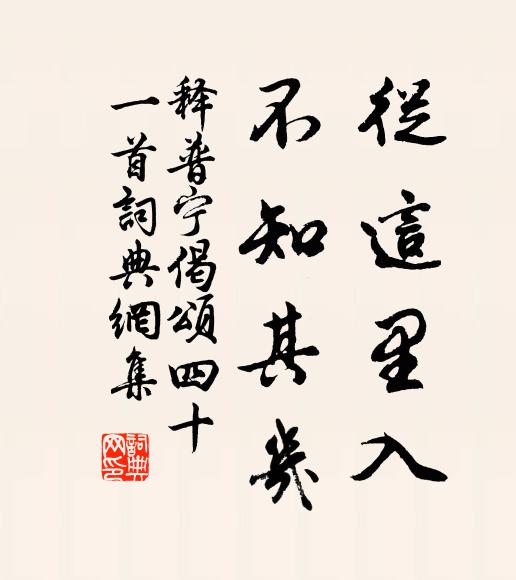 從這里入
不知其幾
释普宁偈頌四十
一首詞典網集
詞典网印